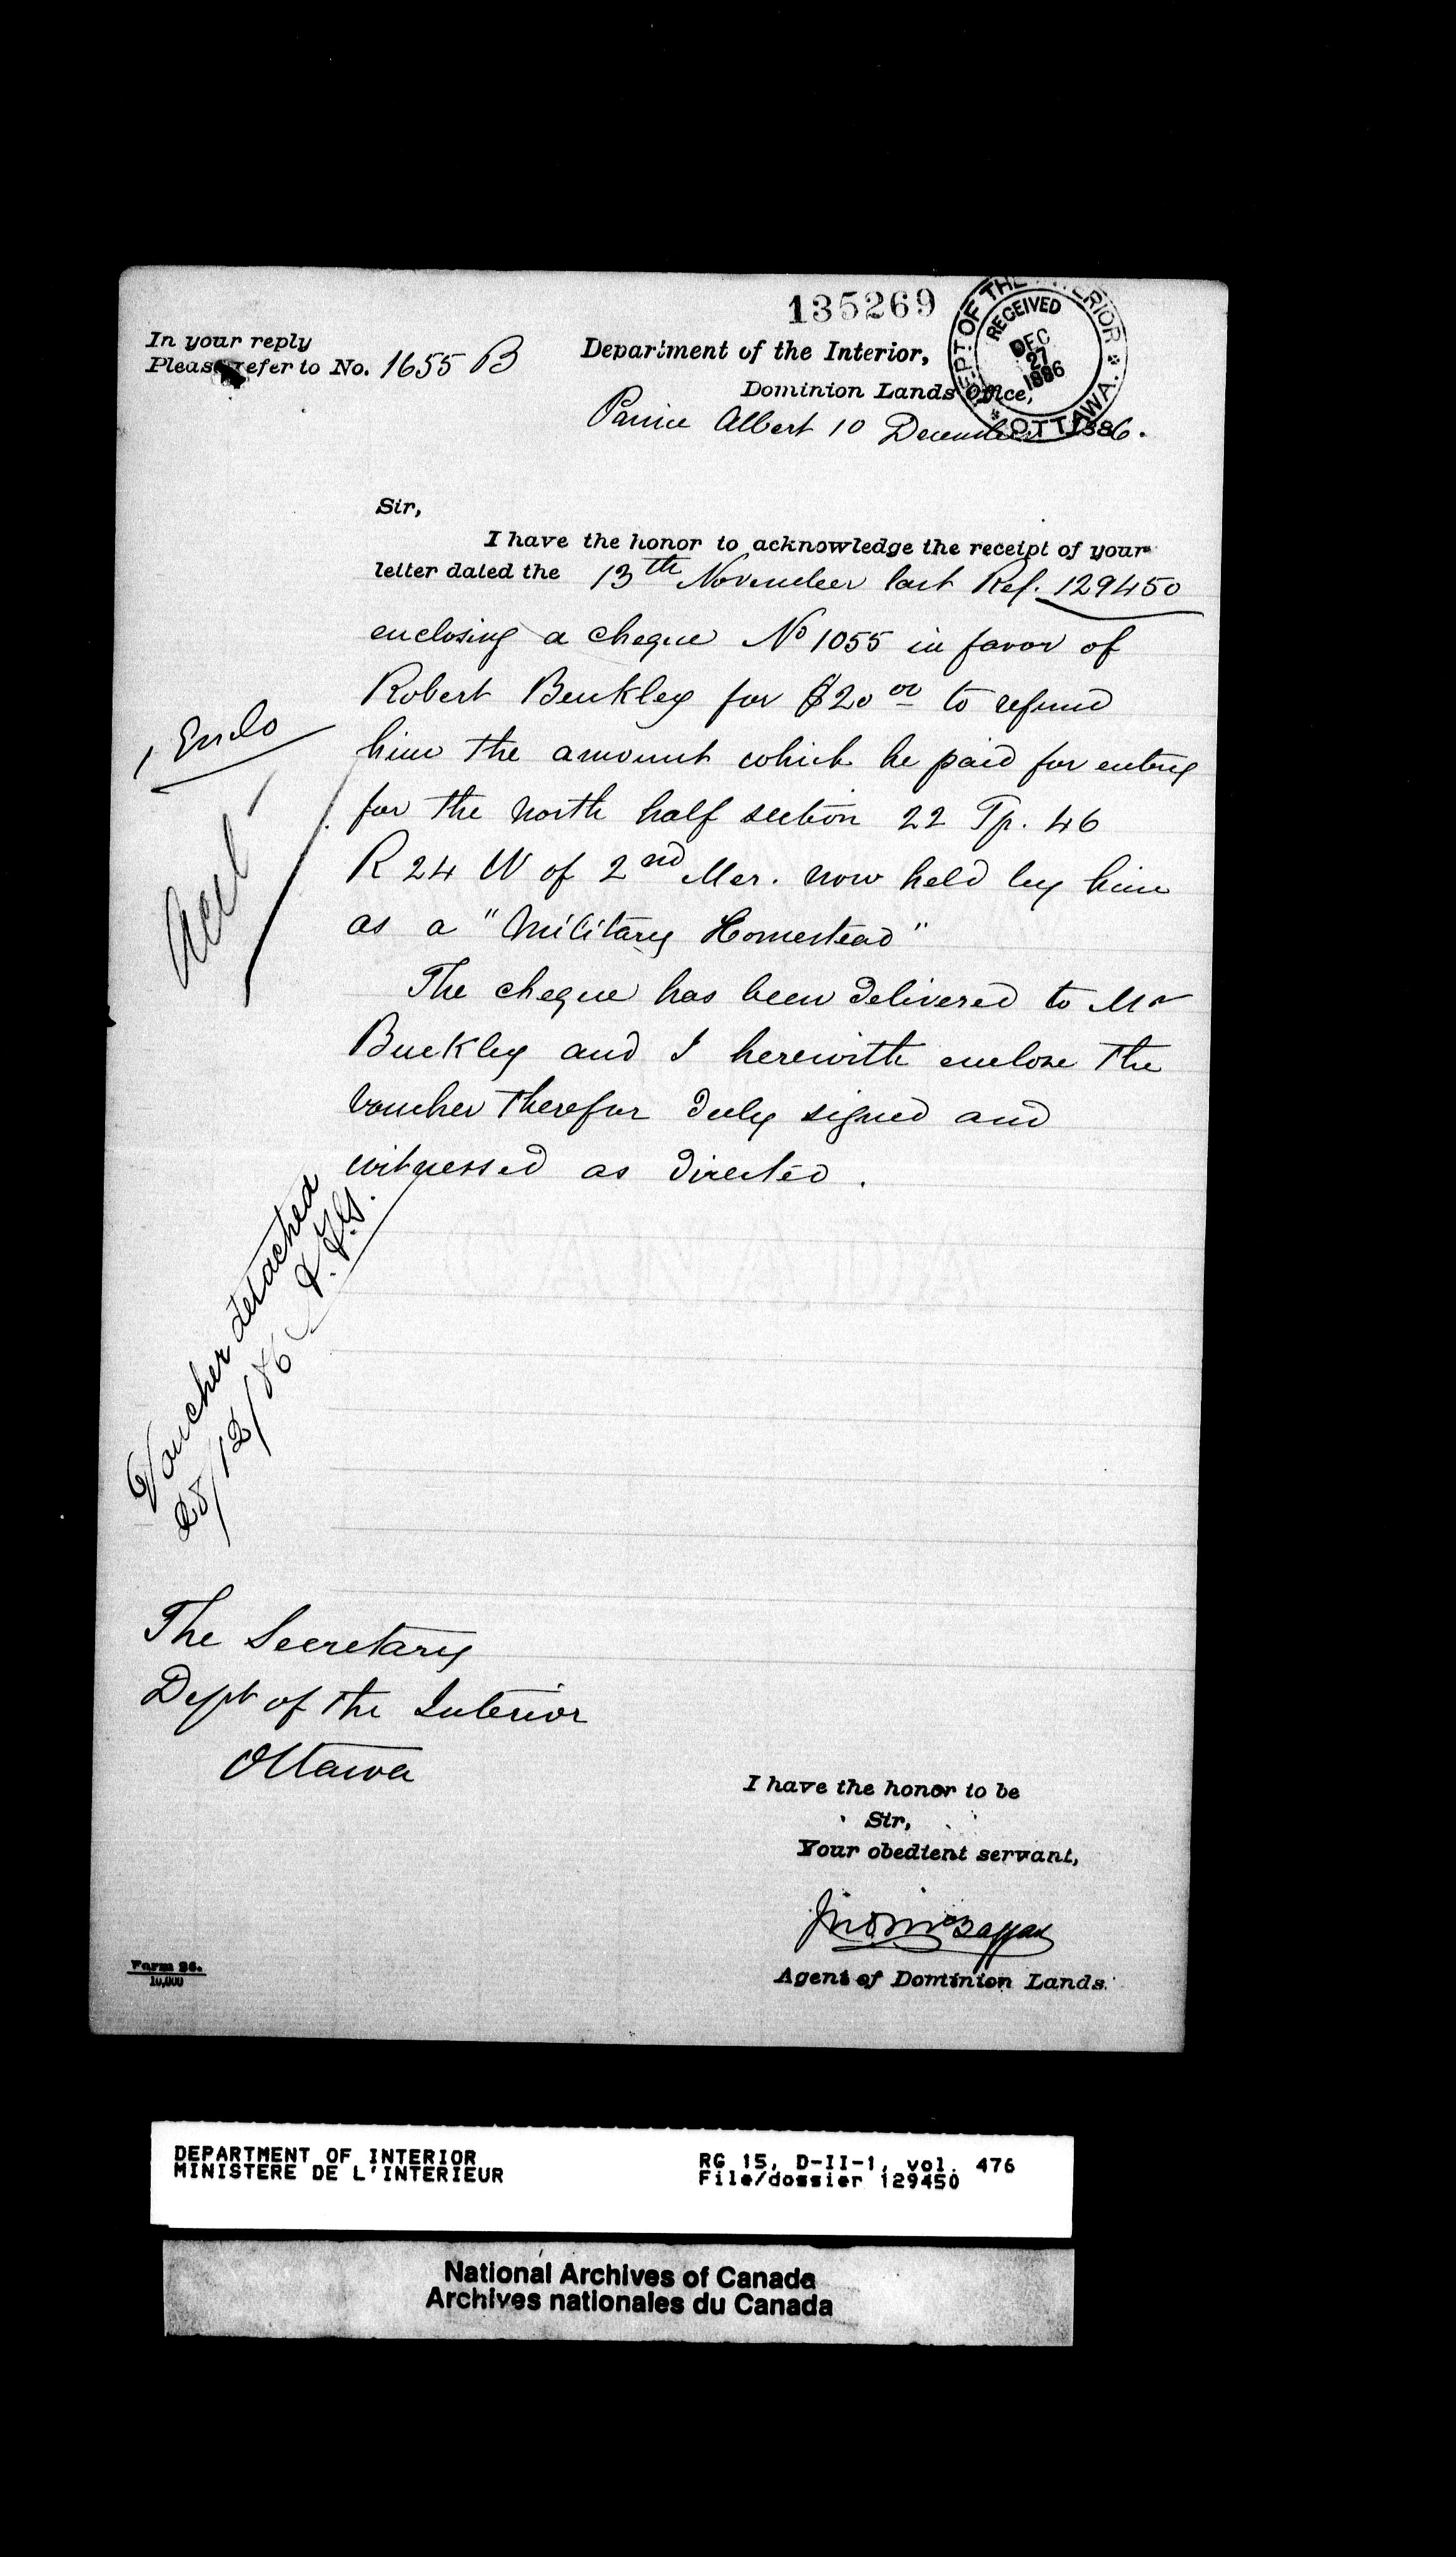 135269
DEPT. OF THE INTERIOR
RECEIVED
DEC
27
1886
OTTAWA.
In your reply
Please refer to No. 1655 B
Department of the Interior,
Dominion Lands Office,
Prince Albert 10 December 1886.
Sir,
I have the honor to acknowledge the receipt of your
letter dated the 13th November last Ref. 129450
enclosing a cheque No 1055 in favor of
Robert Buckley for $20 00 to refund
him the amount which he paid for entry
for the North half section 22 Tp. 46
R 24 W of 2nd Mer. now held by him
as a "Military Homestead"
The cheque has been delivered to Mr
Buckley and I herewith enclose the
voucher therefor duly signed and
witnessed as directed.
1 Enclo
Voucher detached
28/12/86
The Secretary
Dept of the Interior
Ottawa
I have the honor to be
Sir,
Your obedient servant,
Agent of Dominion Lands.
Form 26.
10,000
DEPARTMENT OF INTERIOR
MINISTERE DE L'INTERIEUR
RG 15, D-II-1, vol. 476
File/dossier 129450
National Archives of Canada
Archives nationales du Canada